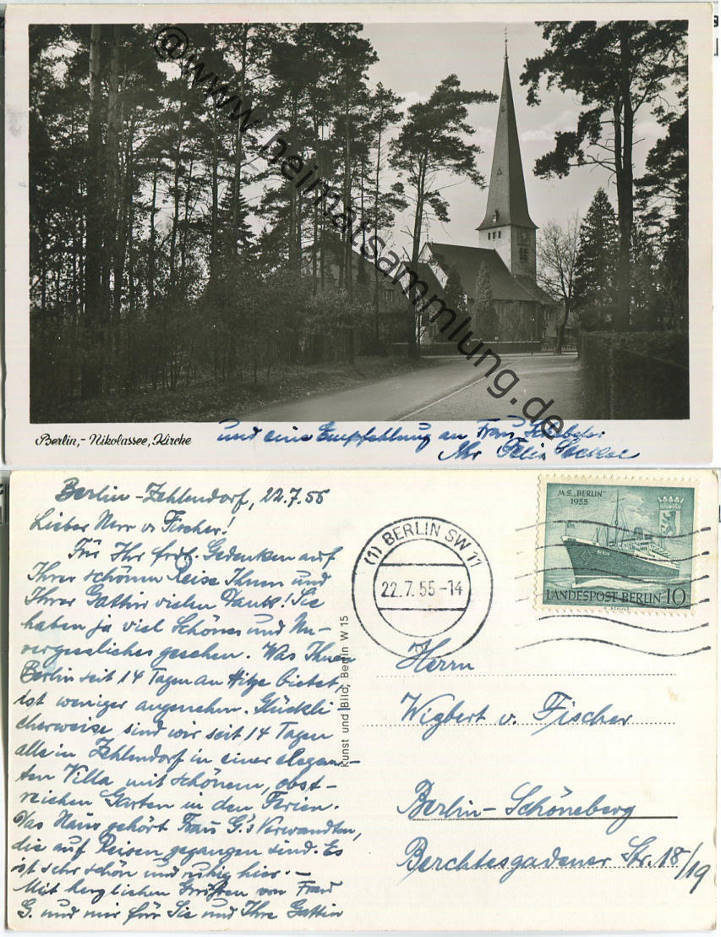 © www.heimatsammlung.de
Berlin,- Nikolassee, Kirche
und eine Empfehlung an Frau
Ihr Felix
Berlin-Zehlendorf, 22.7.55
Lieber Herr v. Fischer!
Für Ihr frdl. Gedenken auf
Ihrer schönen Reise Ihnen und
Ihrer Gattin vielen Dank! Sie
haben ja viel Schönes und Un-
vergessliches gesehen. Was Ihnen
Berlin seit 14 Tagen an Hitze bietet,
ist weniger angenehm. Glückli
cherweise sind wir seit 14 Tagen
alle in Zehlendorf in einer elegan-
ten Villa mit schönem, obst-
reichen Garten in den Ferien.
Das Haus gehört Frau G.'s Verwandten,
die auf Reisen gegangen sind. Es
ist sehr schön und ruhig hier. -
Mit herzlichen Grüßen von Frau
G. und mir für Sie und Ihre Gattin
Kunst und Bild, Berlin W 15
(1) BERLIN SW 11
22.7.55-14
M.S. „BERLIN"
1955
LANDESPOST BERLIN 10
Herrn
Wigbert v. Fischer
Berlin-Schöneberg
Berchtesgadener Str. 18/19